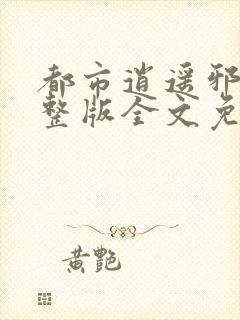 都市逍遥邪
整版全文免
黄艷